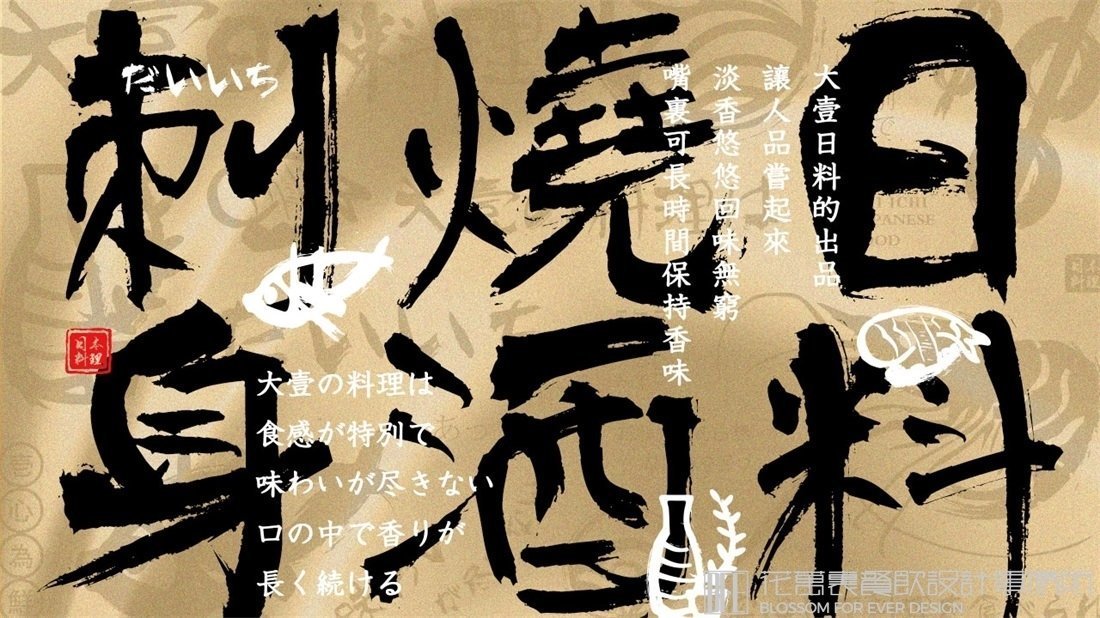 日料
燒酒
刺身
だいいち
大壹日料的出品
讓人品嘗起來
淡香悠悠回味無窮
嘴裏可長時間保持香味
大壹の料理は
食感が特別で
味わいが尽きない
口の中で香りが
長く続ける
日本
料理
壹心為鮮
BLOSSOM FOR EVER DESIGN